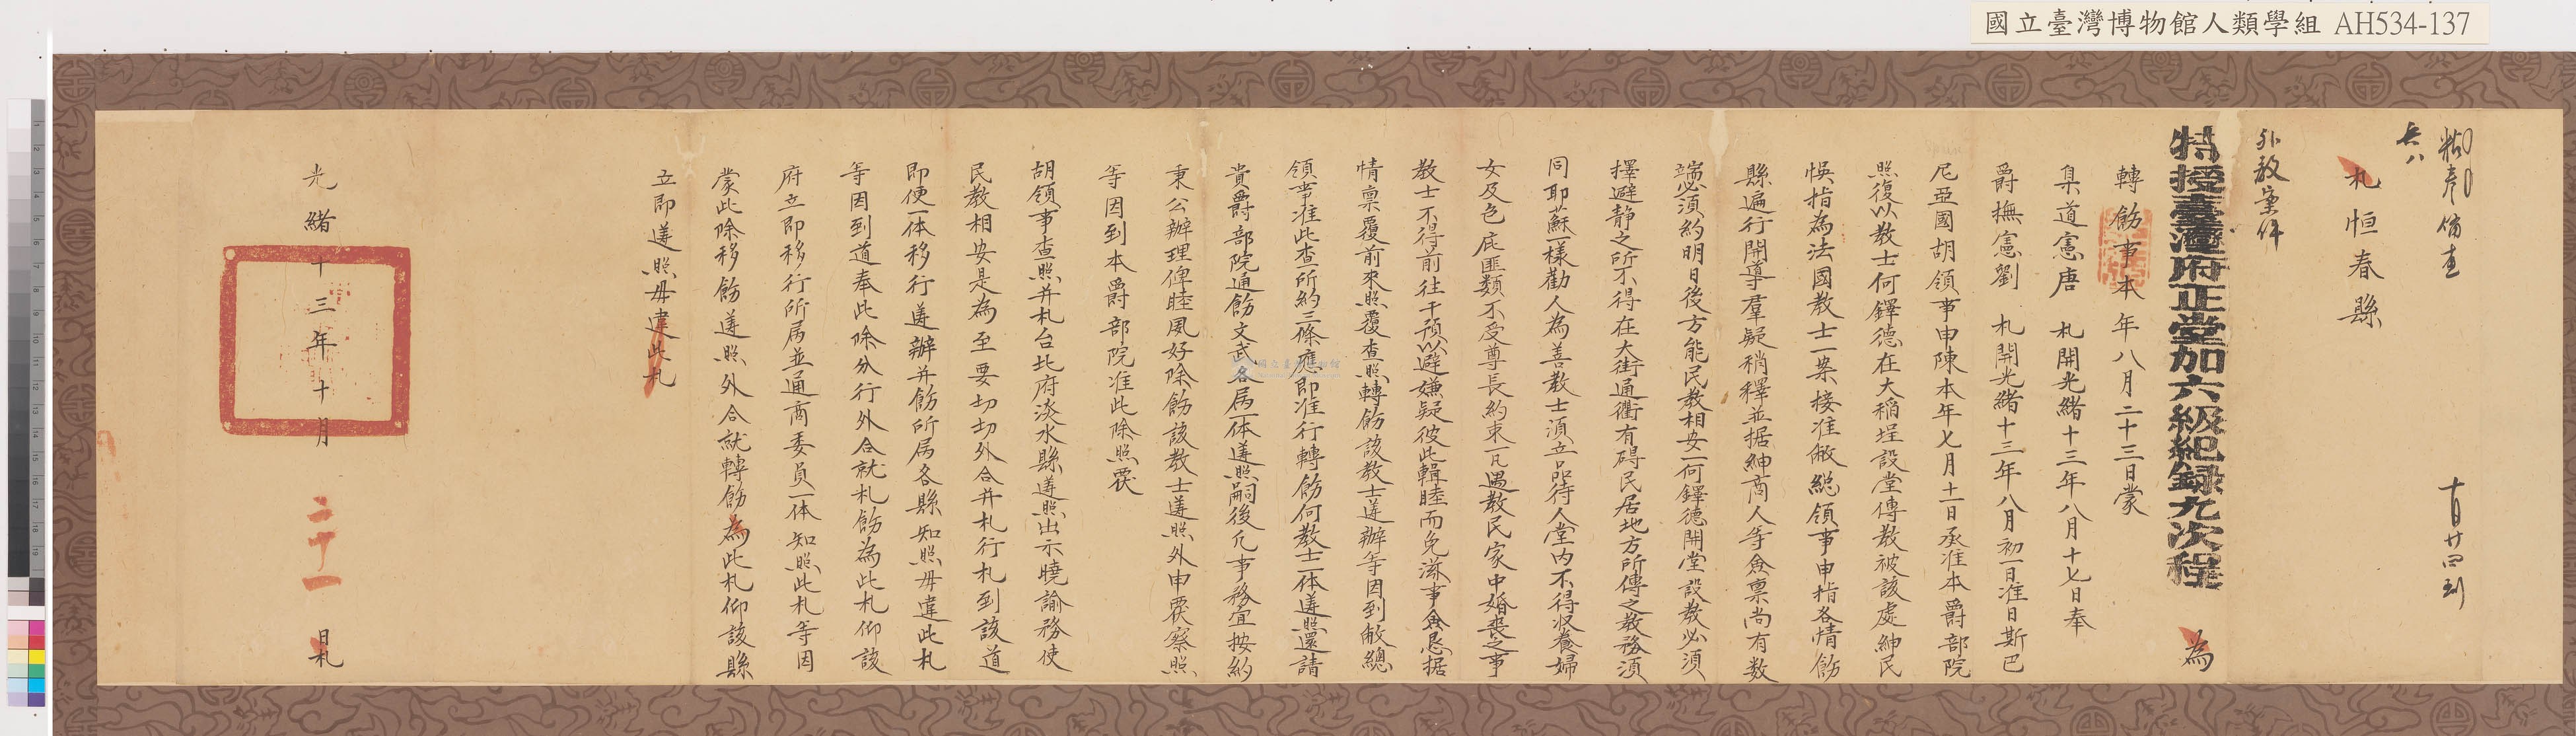 國立臺灣博物館人類學組 AH534-137
兵八
十月廿四到
札恒春縣
外教案件
特授臺灣府正堂加六級紀錄九次程 為
轉飭事本年八月二十三日蒙
臬道憲唐 札開光緒十三年八月十七日奉
爵撫憲劉 札開光緒十三年八月初一日准日斯巴
尼亞國胡領事申陳本年七月十一日承准本爵部院
照復以教士何鐸德在大稻埕設堂傳教被該處紳民
悞指為法國教士一案接准敝總領事申指各情飭
縣遍行開導羣疑稍釋並据紳商人等僉禀尚有数
端必須約明日後方能民教相安一何鐸德開堂設教必須
擇避静之所不得在大街通衢有碍民居地方所傳之教務須
同耶蘇一樣勸人為善教士須立品待人堂内不得收養婦
女及包庇匪類不受尊長約束一凡遇教民家中婚喪之事
教士不得前往干預以避嫌疑彼此輯睦而免滋事僉懇据
情禀覆前來照覆查照轉飭該教士遵辦等因到敝總
領事准此查所約三條應即准行轉飭何教士一体遵照還請
貴爵部院通飭文武各属一体遵照嗣後凡事務宜按約
秉公辦理俾睦風好除飭該教士遵照外申覆察照
等因到本爵部院准此除照覆
胡領事查照并札台北府淡水縣遵照出示曉諭務使
民教相安是為至要切切外合并札行札到該道
即便一体移行遵辦并飭所属各縣知照毋違此札
等因到道奉此除分行外合就札飭為此札仰該
府立即移行所属並通商委員一体知照此札等因
蒙此除移飭遵照外合就轉飭為此札仰該縣
立即遵照毋違此札
光緒十三年十月二十一日札
國立臺灣博物館